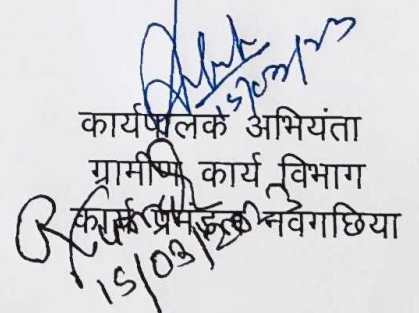 15/03/23
कार्यपालक अभियंता
ग्रामीण कार्य विभाग
कार्य प्रमंडल नवगछिया
15/03/2023